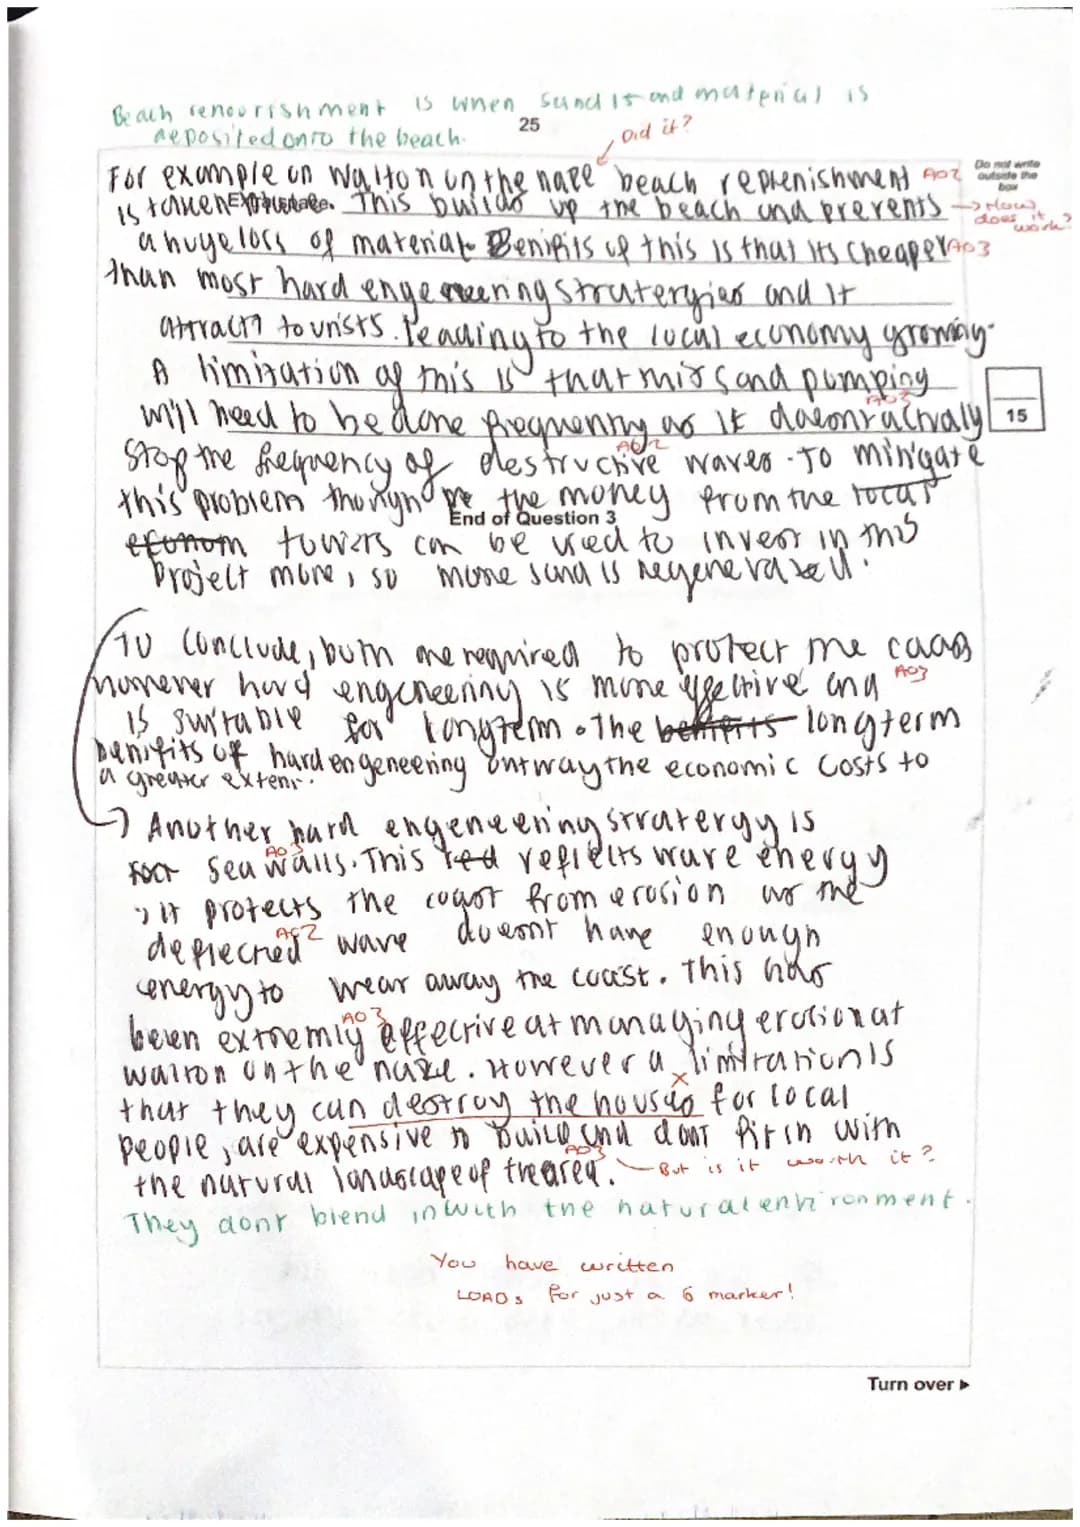 Beach renourishment is when sand is and material is
deposited onto the beach.
25
Did it?
Do not write
outside the
box
For example on Walton on the naze beach replenishment AO2
is taken place. This builds up the beach and prevents → How
does it
work?
a huge loss of material. Benifits of this is that its cheaper AO3
than most hard engeneering stratergies and it
attracts tourists. leading to the local economy growing.
A limitation of this is that this sand pumping
AO3
will need to be done frequently as it doesnt actually
15
AO2
stop the frequency of destructive waves. To mitigate
this problem though the money from the local
End of Question 3
econom towers can be used to invest in this
project more, so more sand is regenerated.
To conclude, both are required to protect the coast
however hard engeneering is more effective and AO3
is suitable for longterm. The benifits longterm
benifits of hard engeneering outway the economic costs to
a greater extent.
→ Another hard engeneering stratergy is
AO3
sea walls. This red reflects wave energy
, it protects the coast from erosion as the
AO2
deflected wave doesnt have enough
energy to wear away the coast. This has
AO3
been extremly effective at managing erosion at
walton on the naze. However a limitation is
x
that they can destroy the houses for local
people, are expensive to build and dont fit in with
AO3
the natural landscape of the area. But is it worth it?
They dont blend in with the natural environment.
You have written
LOADs for just a 6 marker!
Turn over ►